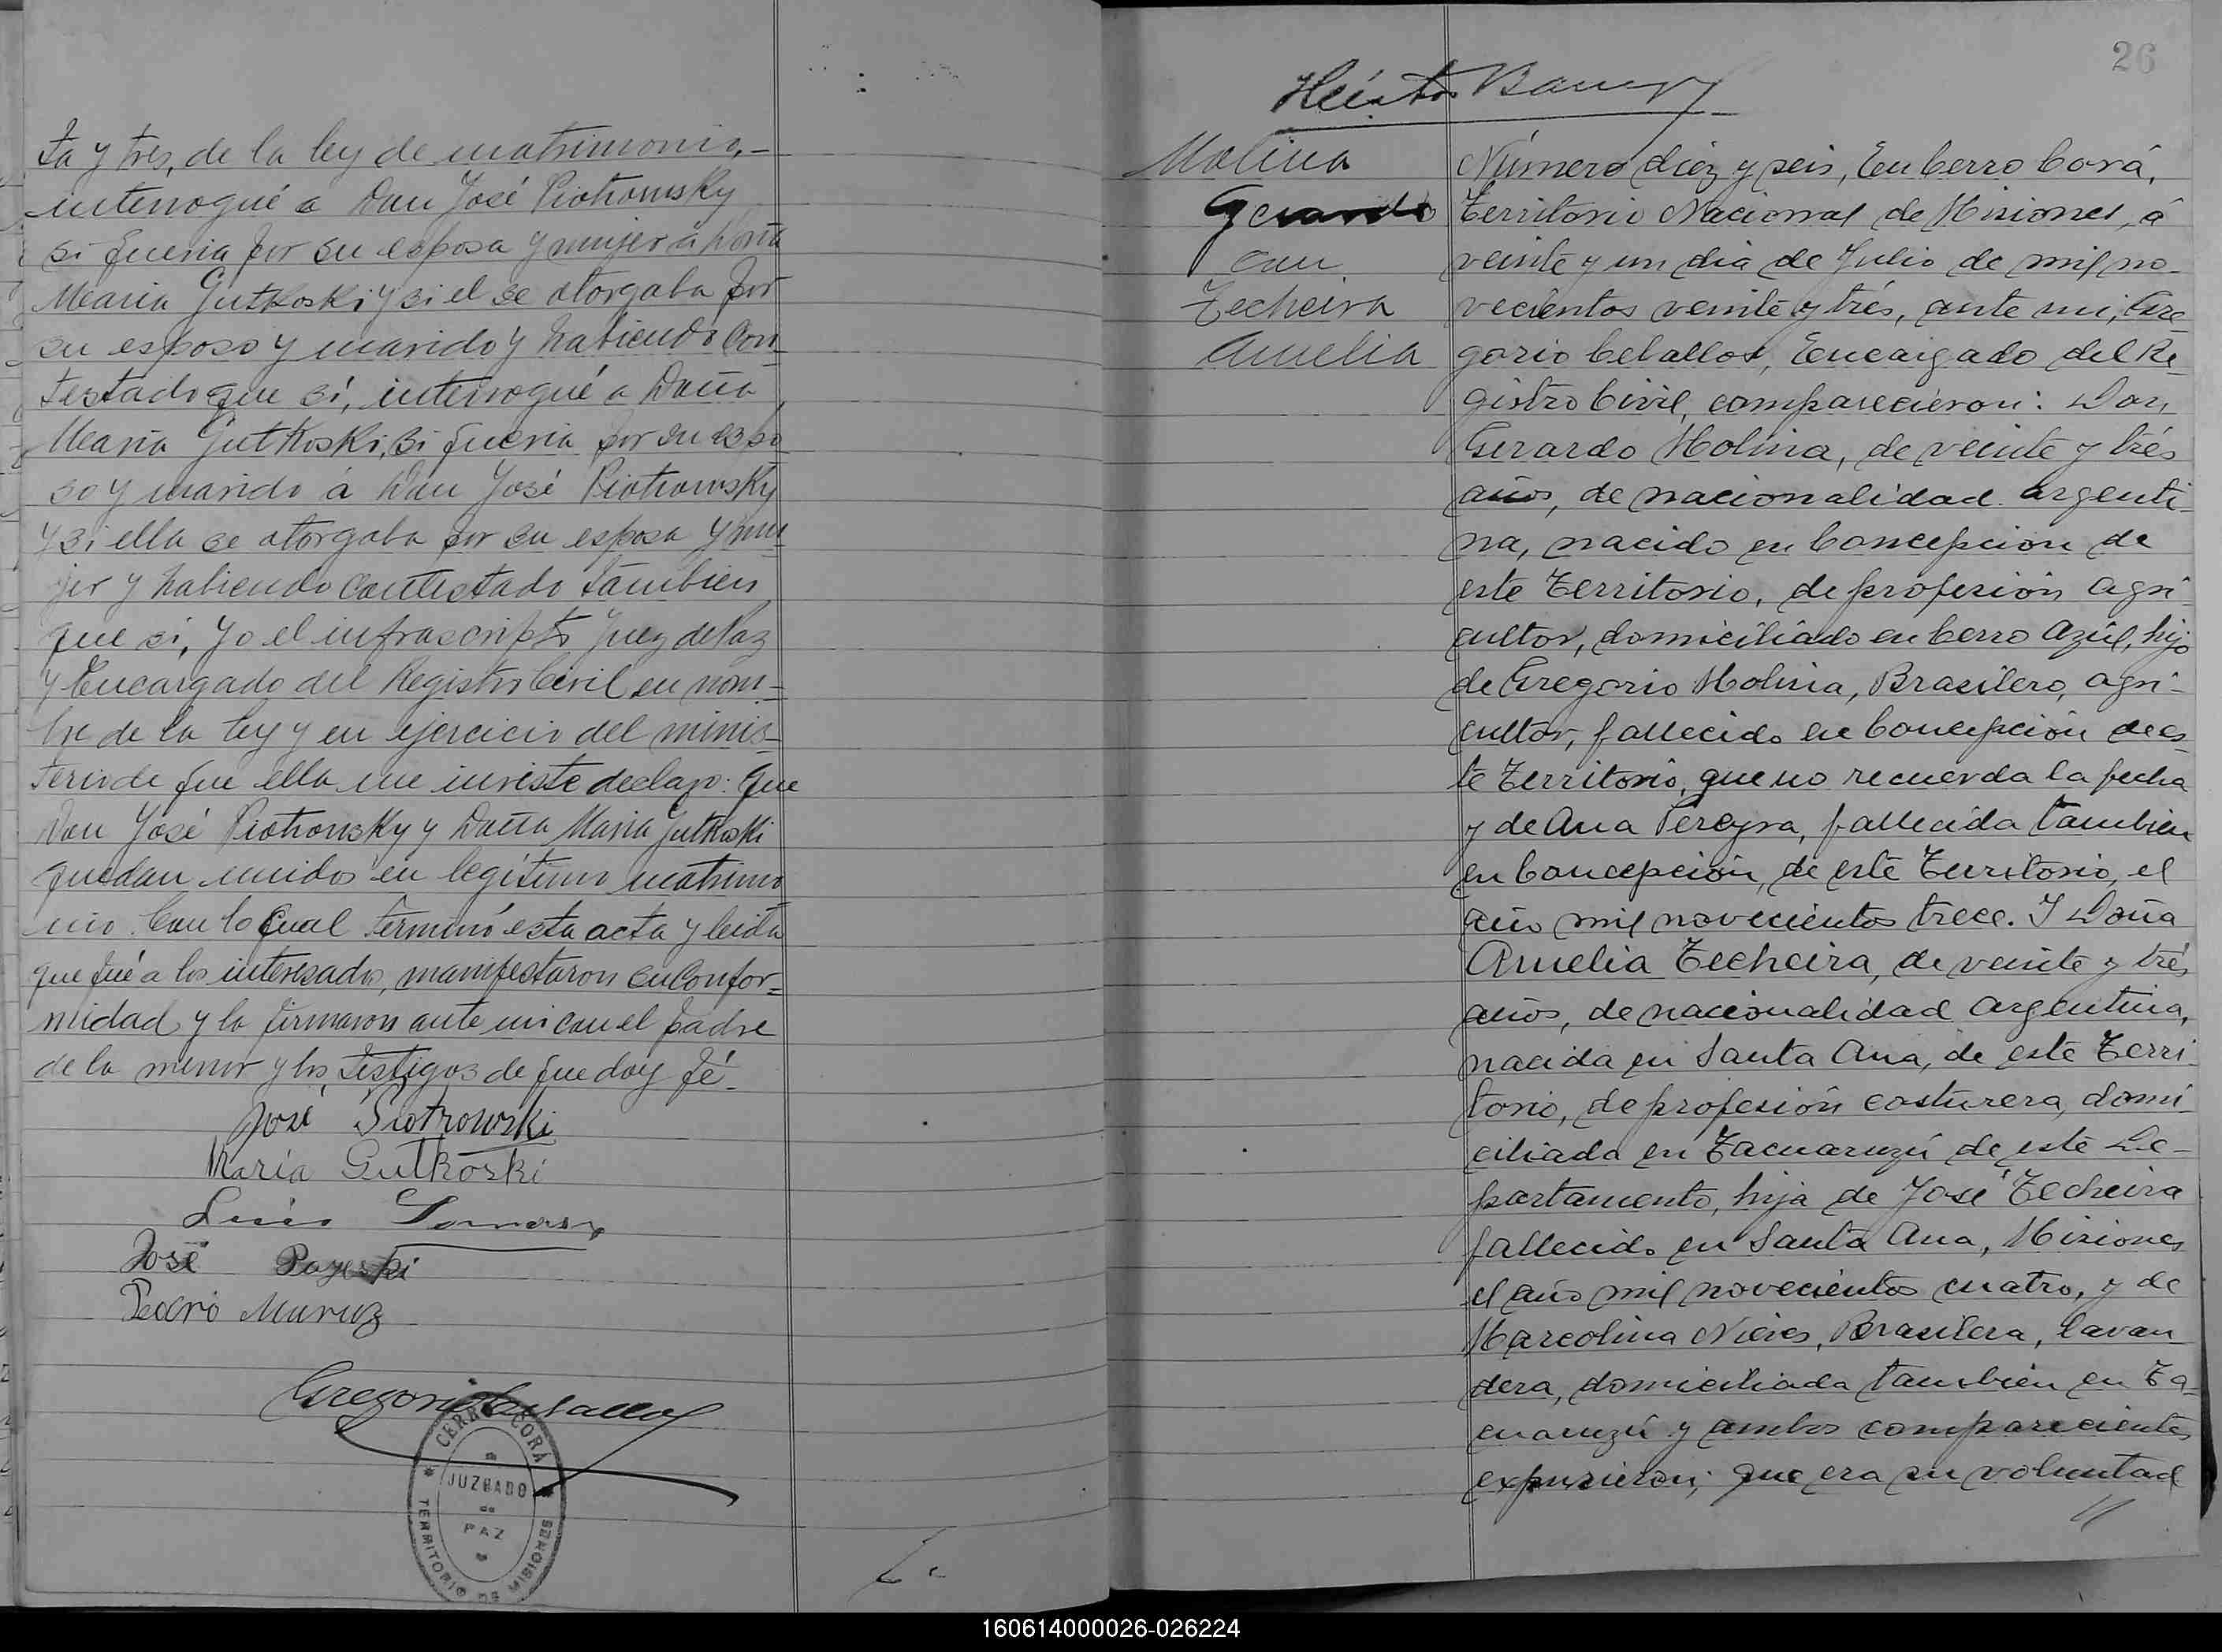 ta y tres, de la ley de matrimonio,-
interrogué a Don José Piotrowsky
si queria por su esposa y mujer á Doña
Maria Gutkoski y si el se otorgaba por
su esposo y marido y habiendo con-
testado que sí, interrogué a Doña
Maria Gutkoski, si queria por su espo
so y marido á Don José Piotrowsky
y si ella se otorgaba por su esposa y mu
jer y habiendo contestado tambien
que si, yo el infrascripto Juez de Paz
y Encargado del Registro Civil en nom-
bre de la ley y en ejercicio del minis-
terio de que ella me inviste declaro: que
Don José Piotrowsky y Doña Maria Gutkoski
quedan unidos en legítimo matrimo
nio. Con lo cual terminó esta acta y leida
que fué a los interesados, manifestaron su confor-
midad y la firmaron ante mi con el padre
de la menor y los testigos de que doy fé-
José Piotrowski
Maria Gutkoski
Luis
José
Pedro Munoz
Gregorio Ceballos
CERRO CORÁ
JUZGADO
de
PAZ
TERRITORIO DE MISIONES
26
Héctor
Molina
Gerardo
con
Techeira
Amelia
Número diez y seis, En Cerro Corá,
Territorio Nacional de Misiones, á
veinte y un dia de Julio de mil no-
vecientos veinte y trés, ante mi, Gre-
gorio Ceballos, Encargado del Re
gistro Civil, comparecieron: Don
Gerardo Molina, de veinte y trés
años, de nacionalidad argenti-
na, nacido en Concepción de
este Territorio, de profesión agri
cultor, domiciliado en Cerro Azúl, hijo
de Gregorio Molina, Brasilero, agri-
cultor, fallecido en Concepción de es
te Territorio, que no recuerda la fecha
y de Ana Pereyra, fallecida tambien
en Concepción, de este Territorio, el
año mil novecientos trece. Y Doña
Amelia Techeira, de veinte y trés
años, de nacionalidad argentina,
nacida en Santa Ana, de este Terri
torio, de profesión costurera, domi-
ciliada en Tacuaruzú de este De-
partamento, hija de José Techeira
fallecido en Santa Ana, Misiones
el año mil novecientos cuatro, y de
Marcolina Nieves, Brasilera, lavan
dera, domiciliada tambien en Ta-
cuaruzú y ambos comparecientes
expusieron; que era su voluntad
160614000026-026224